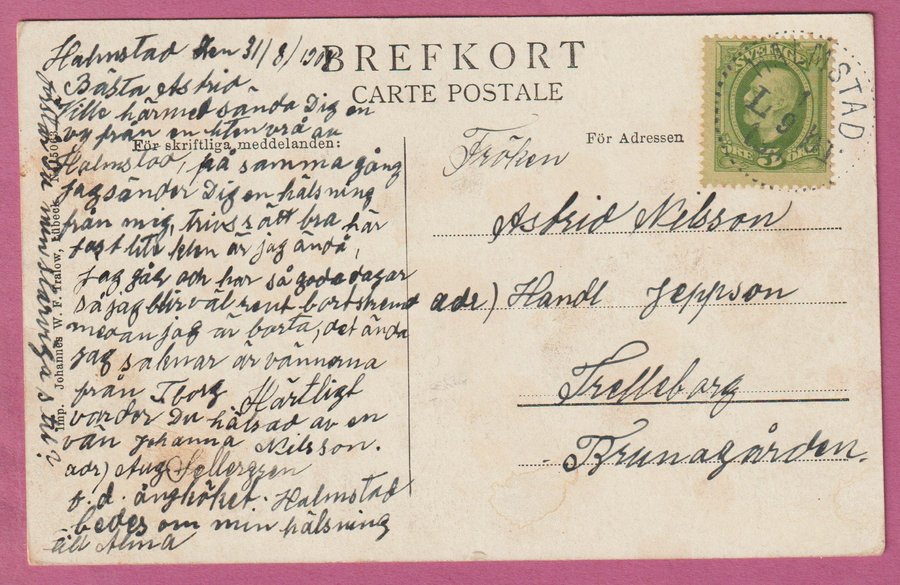 BREFKORT
CARTE POSTALE
För skriftliga meddelanden:
För Adressen
Halmstad den 31/8/190
Bästa Astrid
Ville härmed sända Dig en
vy från en liten vrå av
Halmstad, på samma gång
jag sänder Dig en hälsning
från mig, trivs rätt bra här
fast lite klen är jag ändå,
jag går och har så goda dagar
så jag blir väl rent bortskemd
medan jag är borta, det ända
jag saknar är vännerna
från Tborg Härtligt
vorder Du hälsad av en
vän Johanna Nilsson.
adr) Aug Sellergren
f. d. ångköket. Halmstad
bedes om min hälsning
till Alma
Imp. Johannes W. F. Tralow, Lübeck.
Fröken
Astrid Nilsson
adr) Handl Jeppson
Trelleborg
Brunagården.
SVERIGE
5
ÖRE
MSTAD